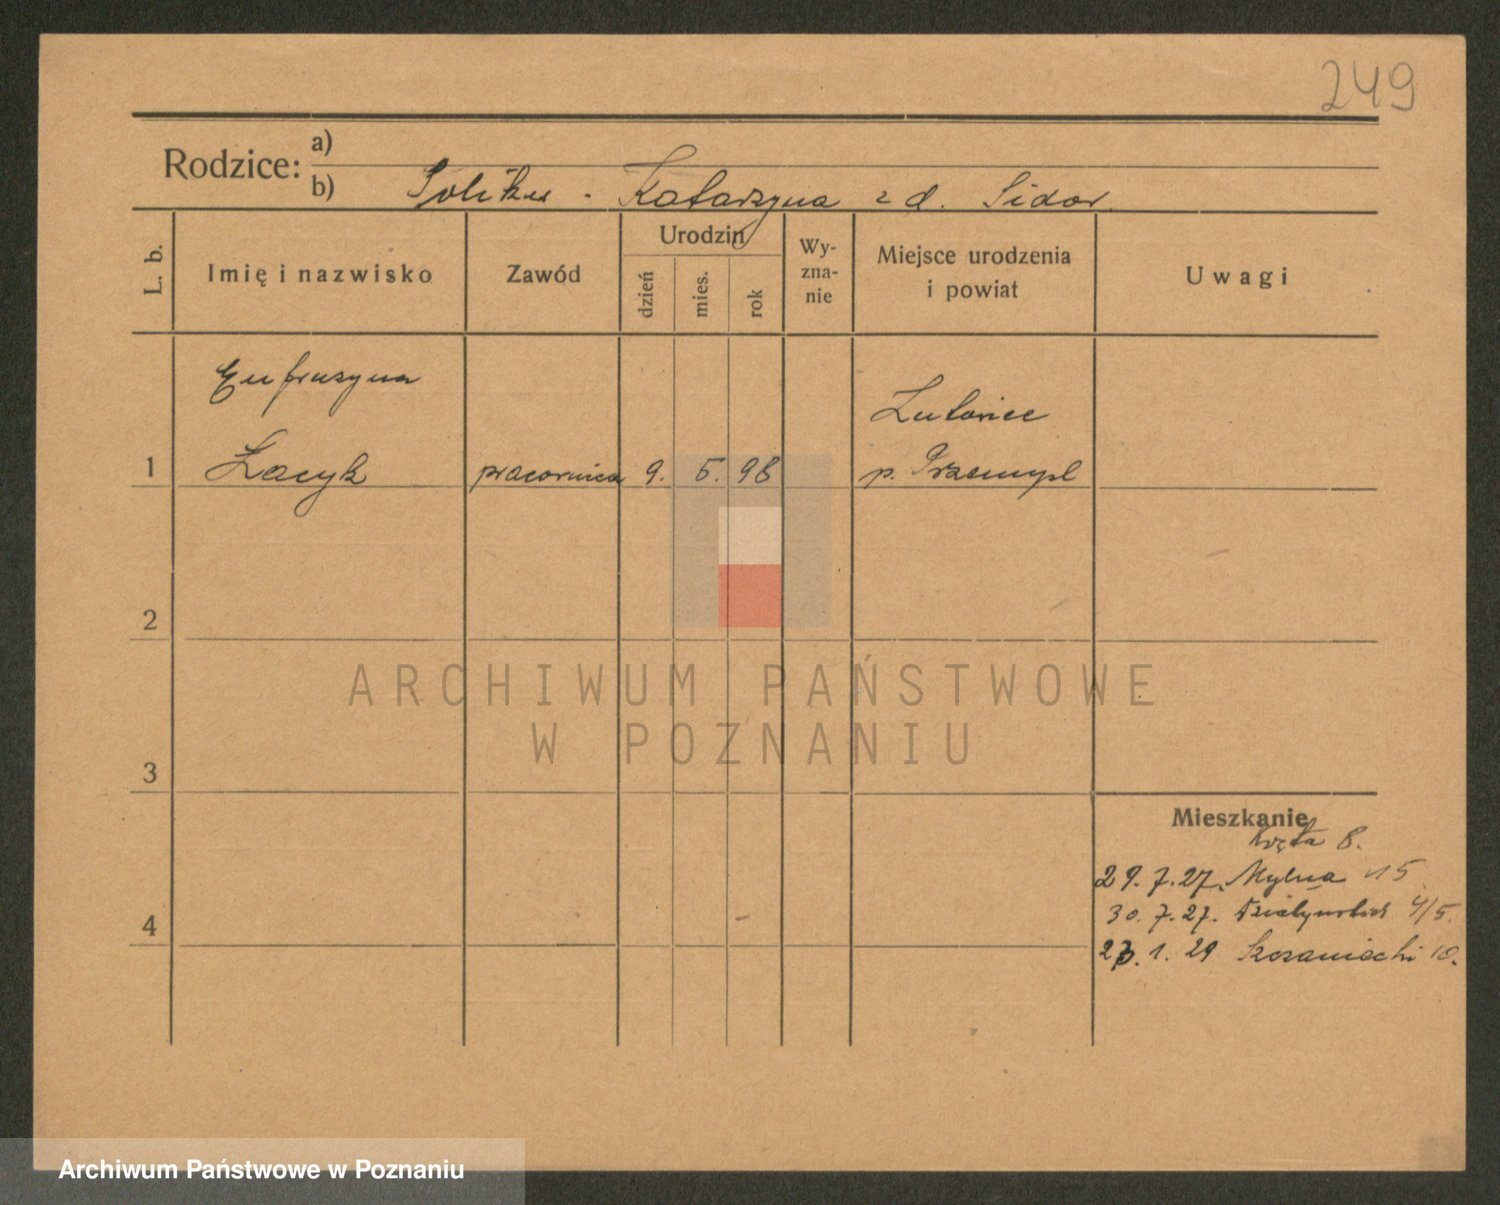 249
Rodzice: a)
b) Katarzyna z d. Sidor
L. b.
Imię i nazwisko
Zawód
Urodzin
dzień
mies.
rok
Wy-
zna-
nie
Miejsce urodzenia
i powiat
Uwagi
Eufruzyna
1 Łacyk pracownica 9. 5. 98
Lutowice
p. Przemyśl
2
3
4
Mieszkanie
Kręta 8.
29. 7. 27. Mylna 15
30. 7. 27. Działyńskich 4/5.
1. 29 Szczanieckiej 10.
ARCHIWUM PAŃSTWOWE
W POZNANIU
Archiwum Państwowe w Poznaniu